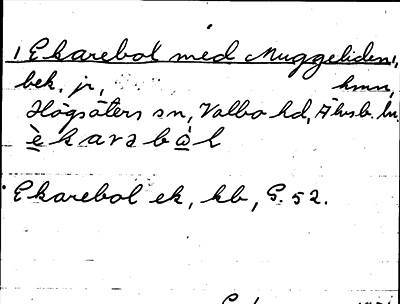 Ekarebol med Muggeliden,
bek, jr, hmn,
Högsäters sn, Valbo hd, Älvsb. ln.
è k a r ə b ò l
Ekarebol ek, kb, G. 52.